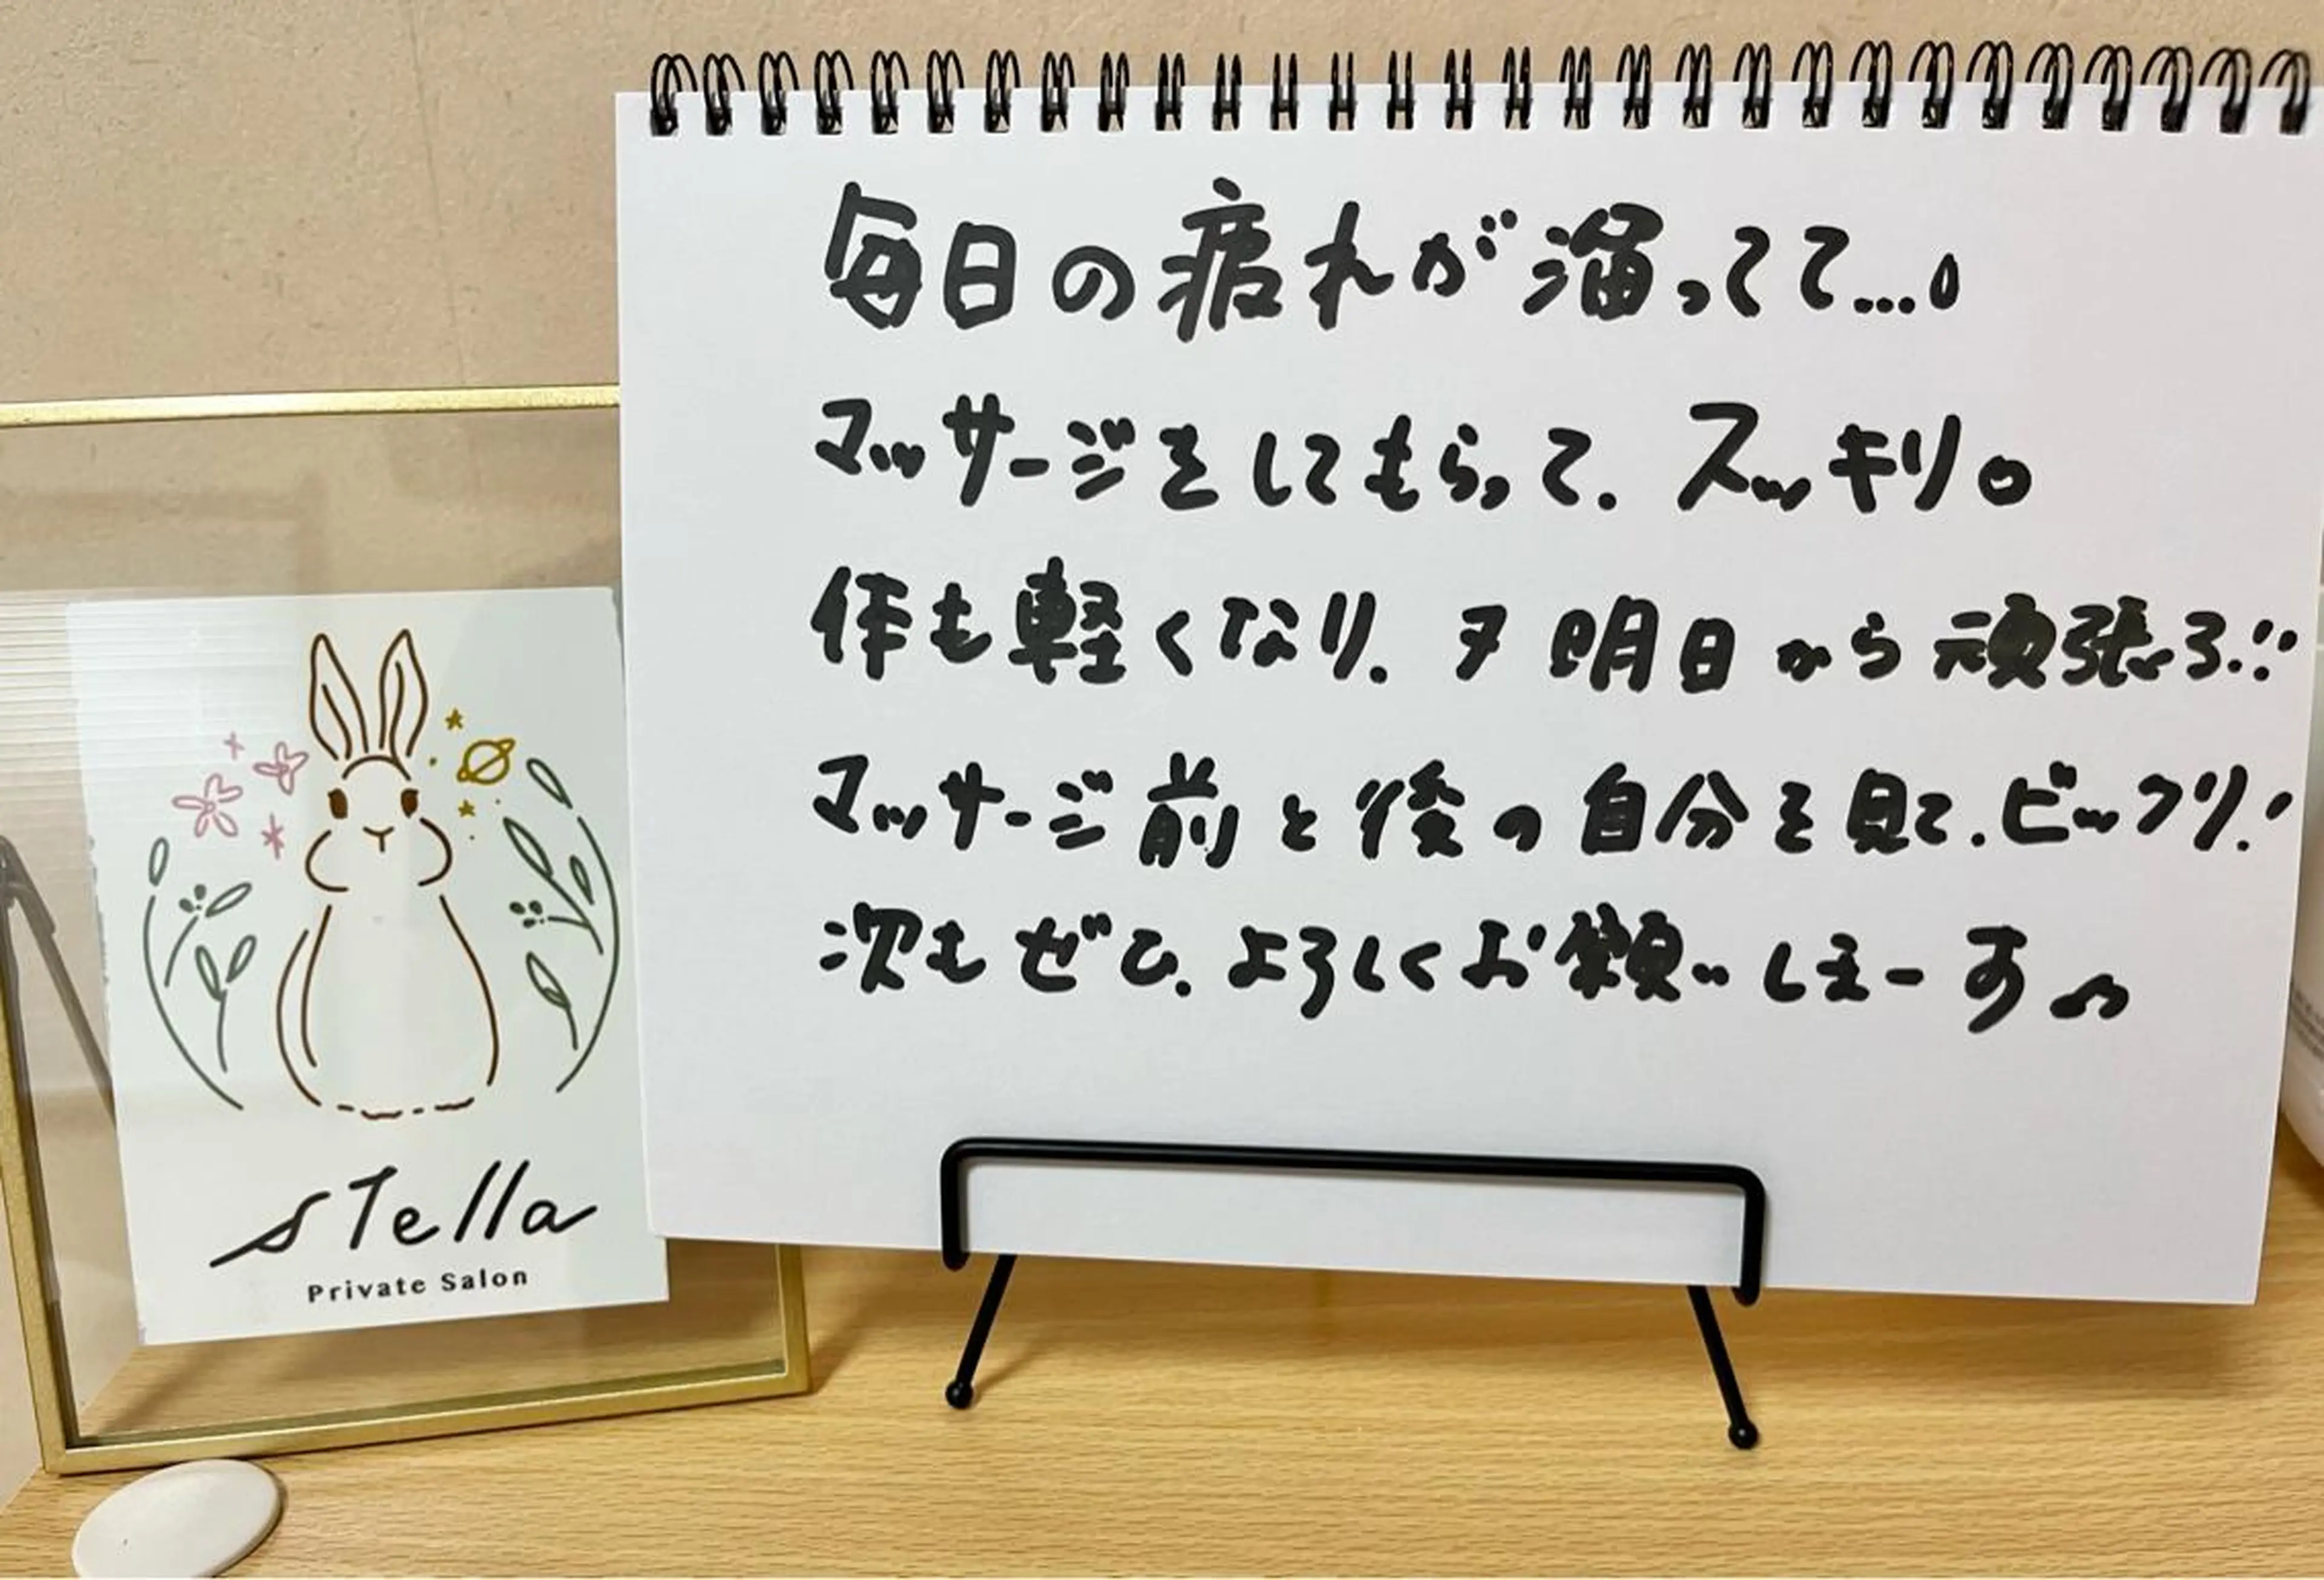 stella
Private Salon
毎日の疲れが溜ってて...。
マッサージをしてもらって、スッキリ。
体も軽くなり、 明日から頑張ろ!!
マッサージ前と後の自分を見て、ビックリ!
次もぜひ、よろしくお願いしまーす